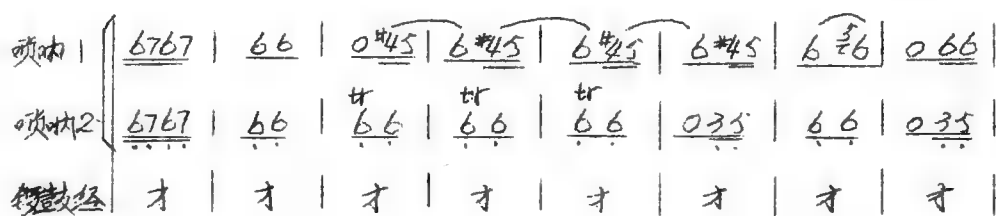 唢呐1 6767 | 66 | 0#45 | 6#45 | 6#45 | 6#45 | 6 6 | 066 |
唢呐2 6767 | 66 | tr 66 | tr 66 | tr 66 | 035 | 66 | 035 |
锣鼓经 才 | 才 | 才 | 才 | 才 | 才 | 才 | 才 |